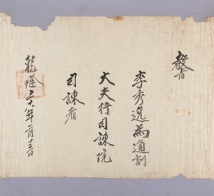 敎旨
李秀逸為通訓
大夫行司諫院
司諫者
乾隆年月日